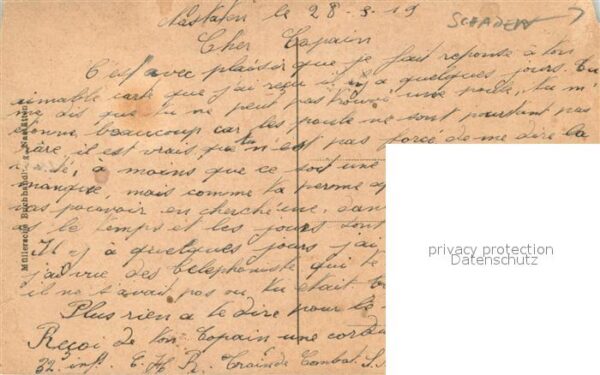 Nastaten le 28-3-19
SCHADEN
Cher Copain
C'est avec plaisir que je fait reponse à ton
aimable carte que j'ai reçu il y a quelques jours. Tu
me dis que tu ne peut pas trouvé une poule, tu m'
étonne beaucoup car les poule ne sont pourtant pas
rare, il est vrais que tu n'est pas forcé de me dire la
à moins que ce soit une
manque, mais comme ta perme
pas pouvoir en cherché une, dans
le temps et les jours sont
Il y à quelques jours j'ai
j'ai vue des téléphoniste qui te
il ne t'avait pas vu tu était
Plus rien a te dire pour le
Reçoi de ton Copain une
32 inf. C. H. R. Train de Combat. S.
Müllersche Buchhandl. Nastätten
privacy protection
Datenschutz